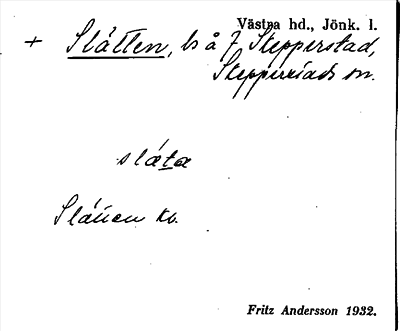 Västra hd., Jönk. l.
+ Slätten, ls å f. Stepperstad,
Stepperstads sn.
släta
Slätten kb.
Fritz Andersson 1932.